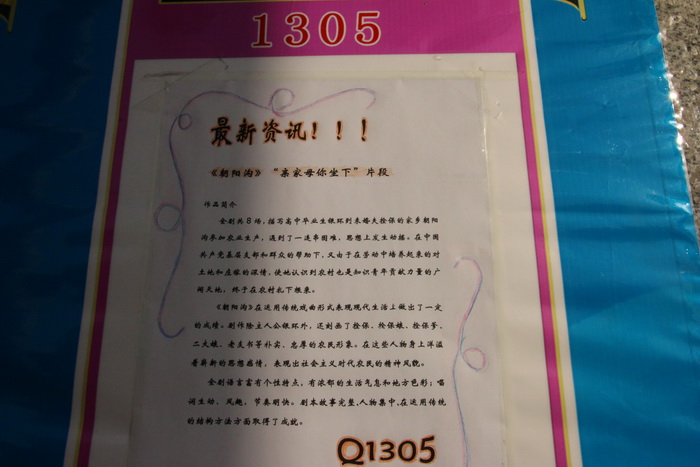 1305
最新资讯！！！
《朝阳沟》“亲家母你坐下”片段
作品简介
全剧共8场，描写高中毕业生银环到未婚夫拴保的家乡朝阳
沟参加农业生产，遇到了一连串困难，思想上发生动摇。在中国
共产党基层支部和群众的帮助下，又由于在劳动中培养起来的对
土地和庄稼的深情，使她认识到农村也是知识青年贡献力量的广
阔天地，终于在农村扎下根来。
《朝阳沟》在运用传统戏曲形式表现现代生活上做出了一定
的成绩。剧作除主人公银环外，还刻画了拴保、拴保娘、拴保爹、
二大娘、老支书等朴实、忠厚的农民形象。在这些人物身上洋溢
着崭新的思想感情，表现出社会主义时代农民的精神风貌。
全剧语言富有个性特点，有浓郁的生活气息和地方色彩；唱
词生动、风趣，节奏明快。剧本故事完整，人物集中，在运用传统
的结构方法方面取得了成就。
Q1305